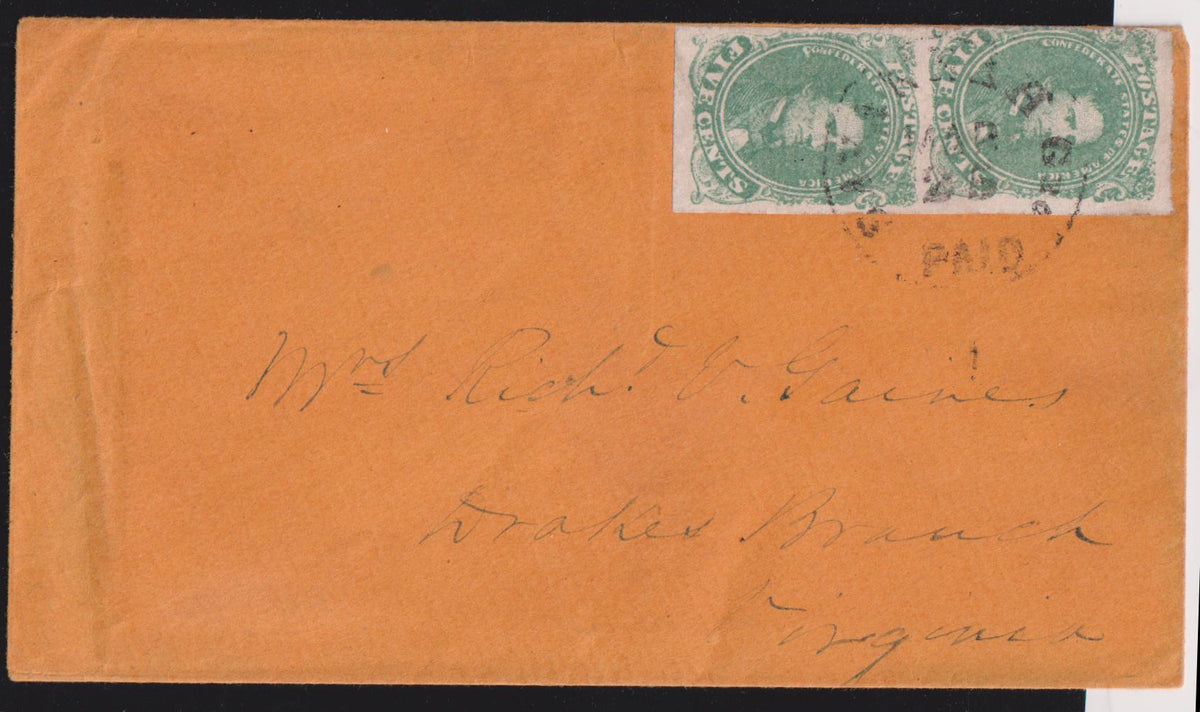 POSTAGE
CONFEDERATE STATES OF AMERICA
FIVE CENTS
POSTAGE
CONFEDERATE STATES OF AMERICA
FIVE CENTS
PAID
Mrs Richd V. Gaines
Drakes Branch
Virginia